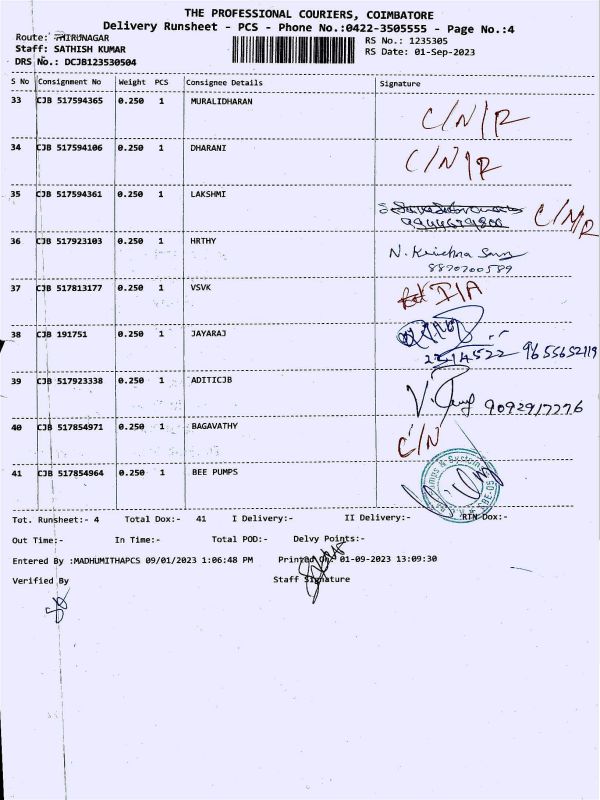 THE PROFESSIONAL COURIERS, COIMBATORE
Delivery Runsheet - PCS - Phone No.:0422-3505555 - Page No.:4
Route: THIRUNAGAR
RS No.: 1235305
Staff: SATHISH KUMAR
RS Date: 01-Sep-2023
DRS No.: DCJB123530504
S No Consignment No Weight PCS Consignee Details Signature
33 CJB 517594365 0.250 1 MURALIDHARAN C/N/R
34 CJB 517594106 0.250 1 DHARANI C/N/R
35 CJB 517594361 0.250 1 LAKSHMI C/N/R
36 CJB 517923103 0.250 1 HRTHY N. Krishna
8870700589
37 CJB 517813177 0.250 1 VSVK I/A
38 CJB 191751 0.250 1 JAYARAJ
9655652119
39 CJB 517923338 0.250 1 ADITICJB 9092917776
40 CJB 517854971 0.250 1 BAGAVATHY C/N
41 CJB 517854964 0.250 1 BEE PUMPS
Tot. Runsheet:- 4 Total Dox:- 41 I Delivery:- II Delivery:- RTN Dox:-
Out Time:- In Time:- Total POD:- Delvy Points:-
Entered By :MADHUMITHAPCS 09/01/2023 1:06:48 PM Printed On: 01-09-2023 13:09:30
Verified By Staff Signature